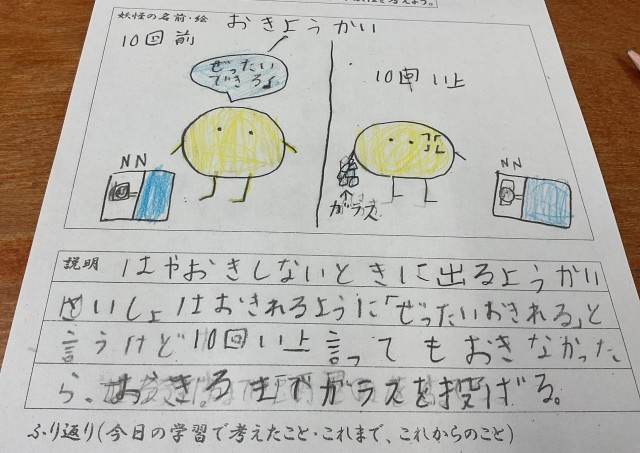 妖怪の名前・絵 おきようかい
10回前
ぜったい
できる♪
10回い上
NN
NN
↑
ガラス
説明 はやおきしないときに出るようかい
さいしょはおきれるように「ぜったいおきれる」と
言うけど10回い上言ってもおきなかった
ら、おきるまでガラスを投げる。
ふり返り(今日の学習で考えたこと・これまで、これからのこと)